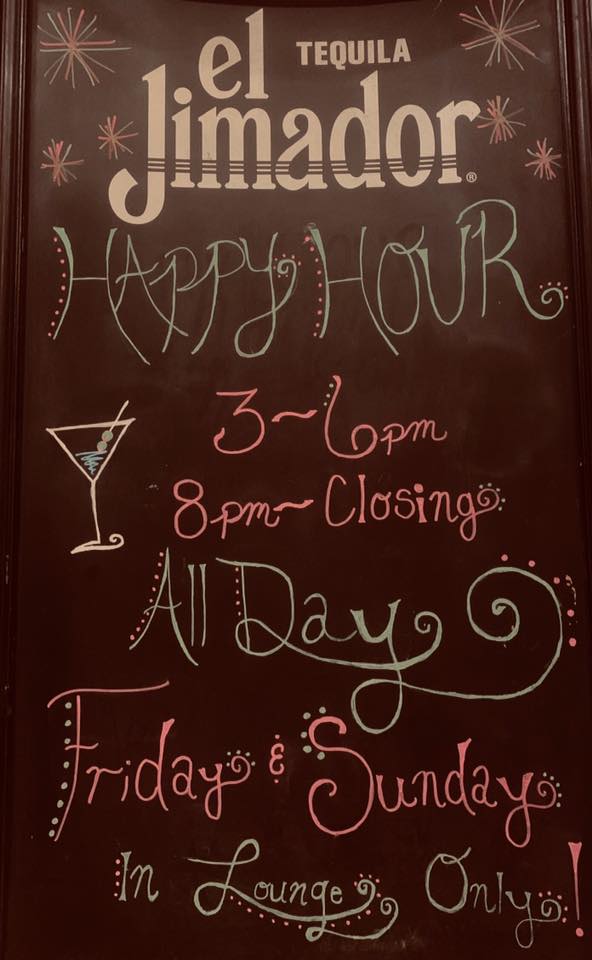 el TEQUILA
Jimador®
HAPPY HOUR
3~6pm
8pm~Closing
All Day
Friday & Sunday
In Lounge Only!